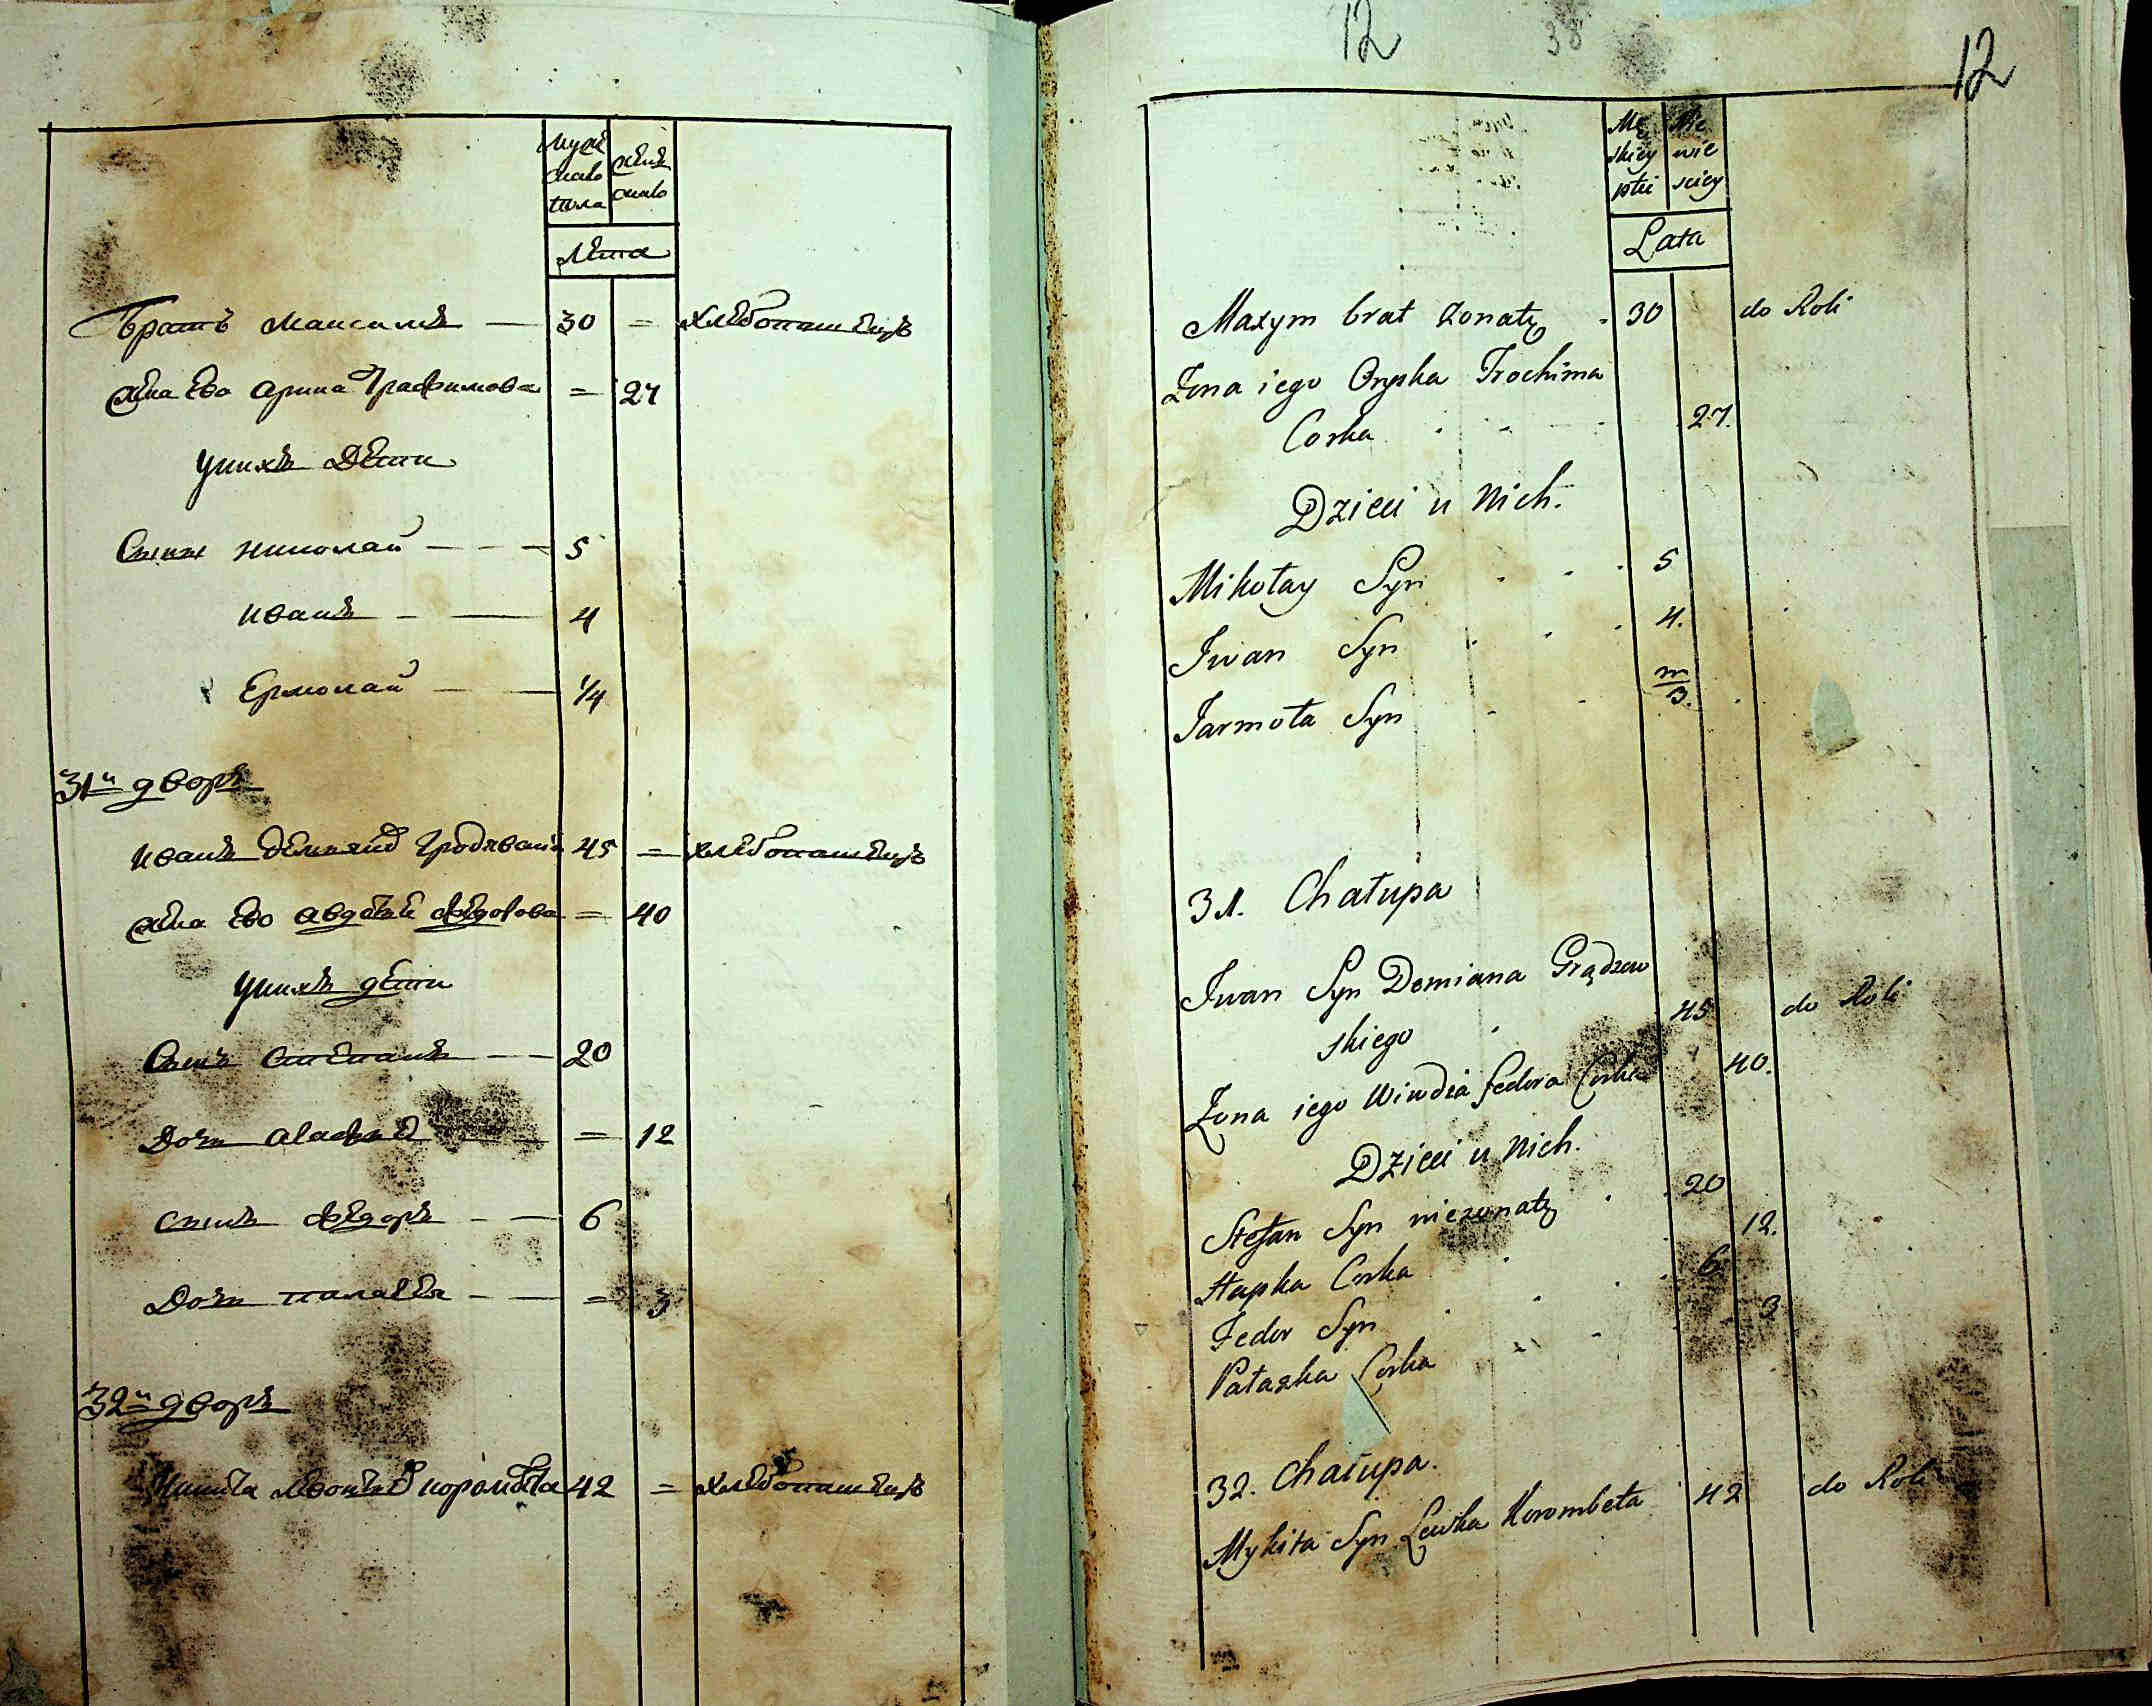 муж
скаго
пола
женс
скаго
Лѣта
Братъ Максимъ — 30 = хлѣбопашецъ
жена ево Арина Трафимова = 27
у нихъ Дети
Сыны Николай — — — 5
Иванъ — — 4
Ермолай — — 1/4
31й дворъ
Иванъ Демяно 45 = хлѣбопашецъ
жена ево Авдотья Федорова = 40
у нихъ дети
Сынъ Степанъ — — 20
Дочь Агафия — = 12
сынъ Федоръ — — 6
Дочь Палагея — — = 3
32й дворъ
Никита 42 = хлѣбопашецъ
12 38 12
Mę
skiey
płci
Nie
wie
sciey
Lata
Maxym brat żonaty 30 do Roli
Żona iego Oryska Trochima
Corka 27.
Dzieci u Nich.
Mikołay Syn 5
Iwan Syn 4.
Jarmoła Syn m/3.
31. Chałupa
Iwan Syn Demiana Grądzew
skiego 45 do Roli
Żona iego Wiwdia fedora Corka 40.
Dzieci u Nich.
Stefan Syn nieżonaty 20
Hapka Corka 12.
Fedor Syn 6
Pałazka Corka 3
32. Chałupa.
Mykita Syn Lewka Korombeta 42 do Roli